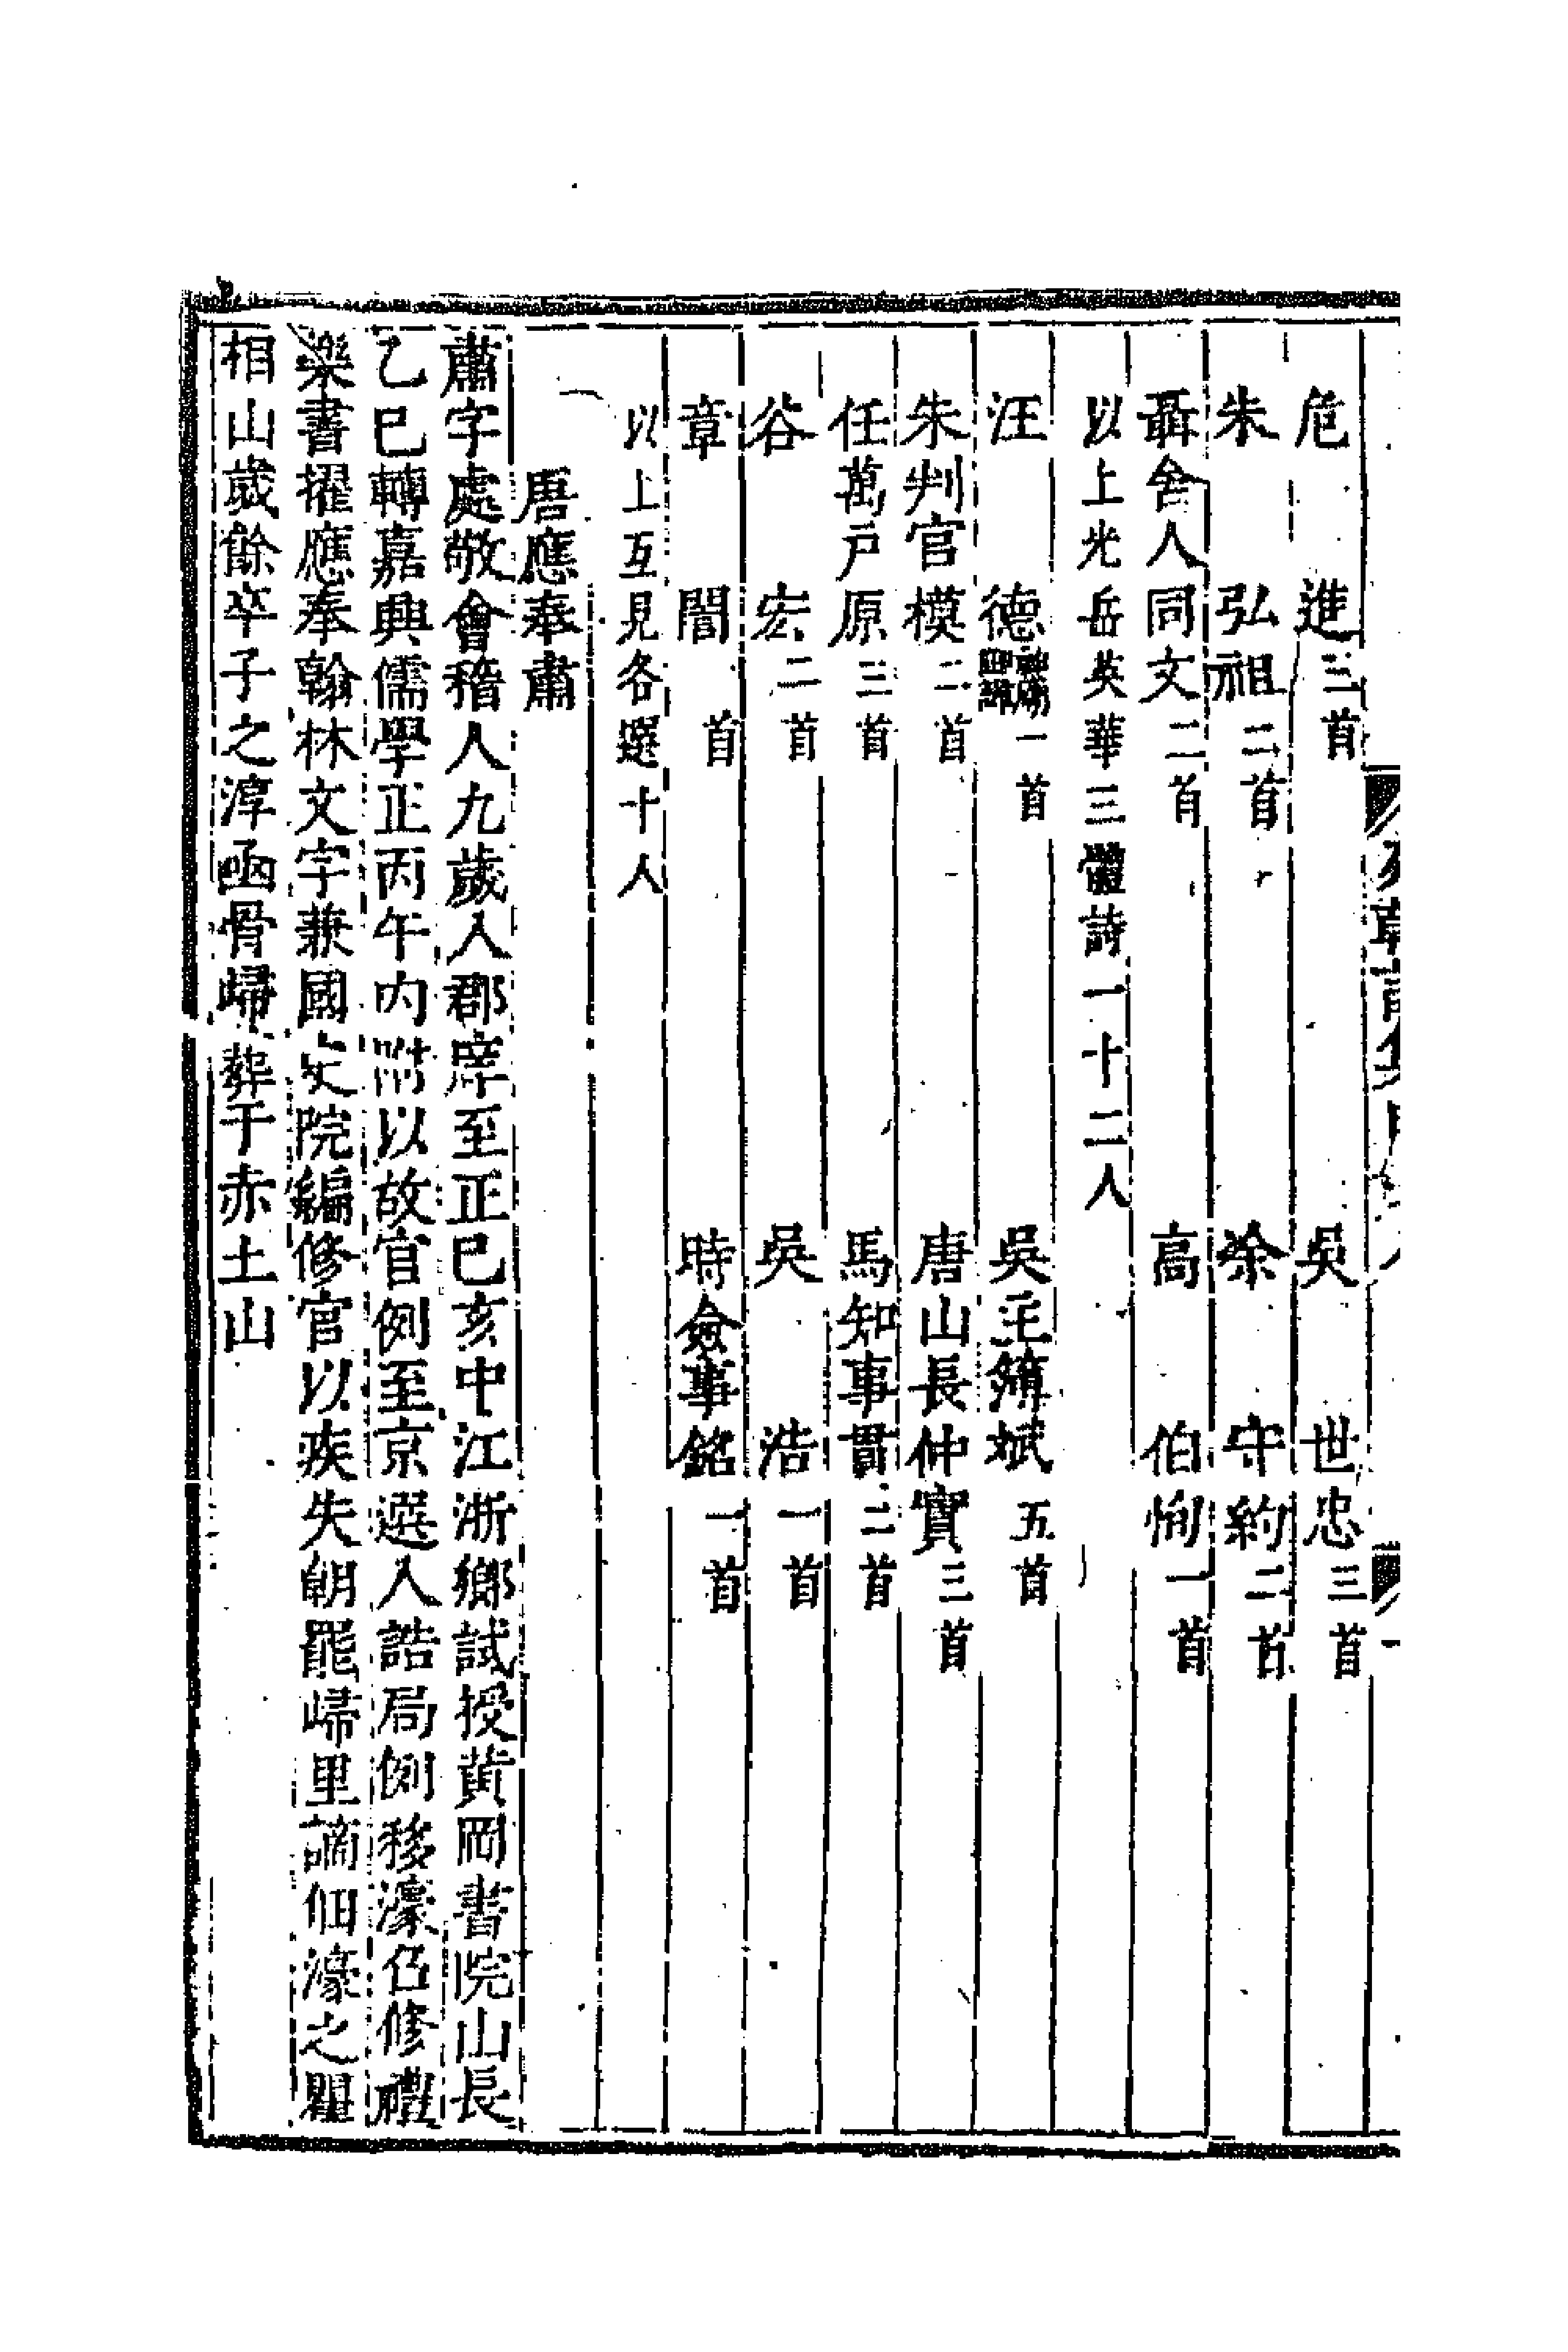 危進三首　吳世忠三首
朱弘祖二首　涂守約二首
聶舍人同文二首　高伯恂一首
以上光岳英華三體詩一十二人
汪德一首　吳主簿斌五首
朱判官模二首　唐山長仲實三首
任萬戶原三首　馬知事貫二首
谷宏二首　吳浩一首
章誾　首　時僉事銘一首
以上互見各選十人
唐應奉肅
肅字處敬會稽人九歲入郡庠至正巳亥中江浙鄉試授黃岡書院山長
乙巳轉嘉興儒學正丙午內附以故官例至京選入誥局例移濠召修禮
樂書擢應奉翰林文字兼國史院編修官以疾失朝罷歸里謫佃濠之瞿
相山歲餘卒子之淳函骨歸葬于赤土山